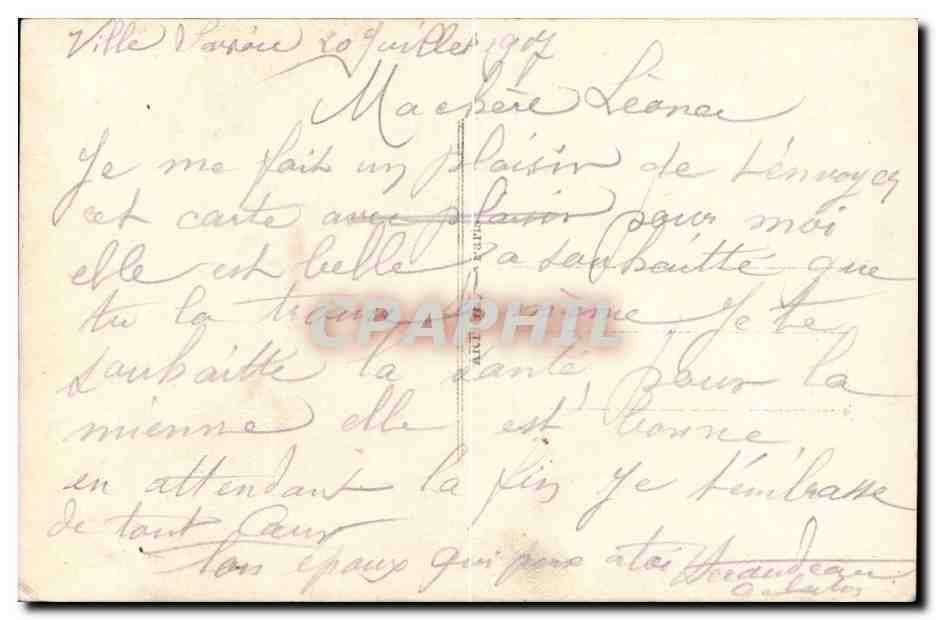 Ville 20 Juillet 1917
Ma chère Léonce
Je me fait un plaisir de t'envoyer
cet carte avec plaisir pour moi
elle est belle a souhaitté que
tu la trouve de même Je te
souhaitte la santé pour la
mienne elle est bonne
en attendant la fin Je t'embrasse
de tout Cœur
ton époux qui pense a toi
Paris
CPAPHIL